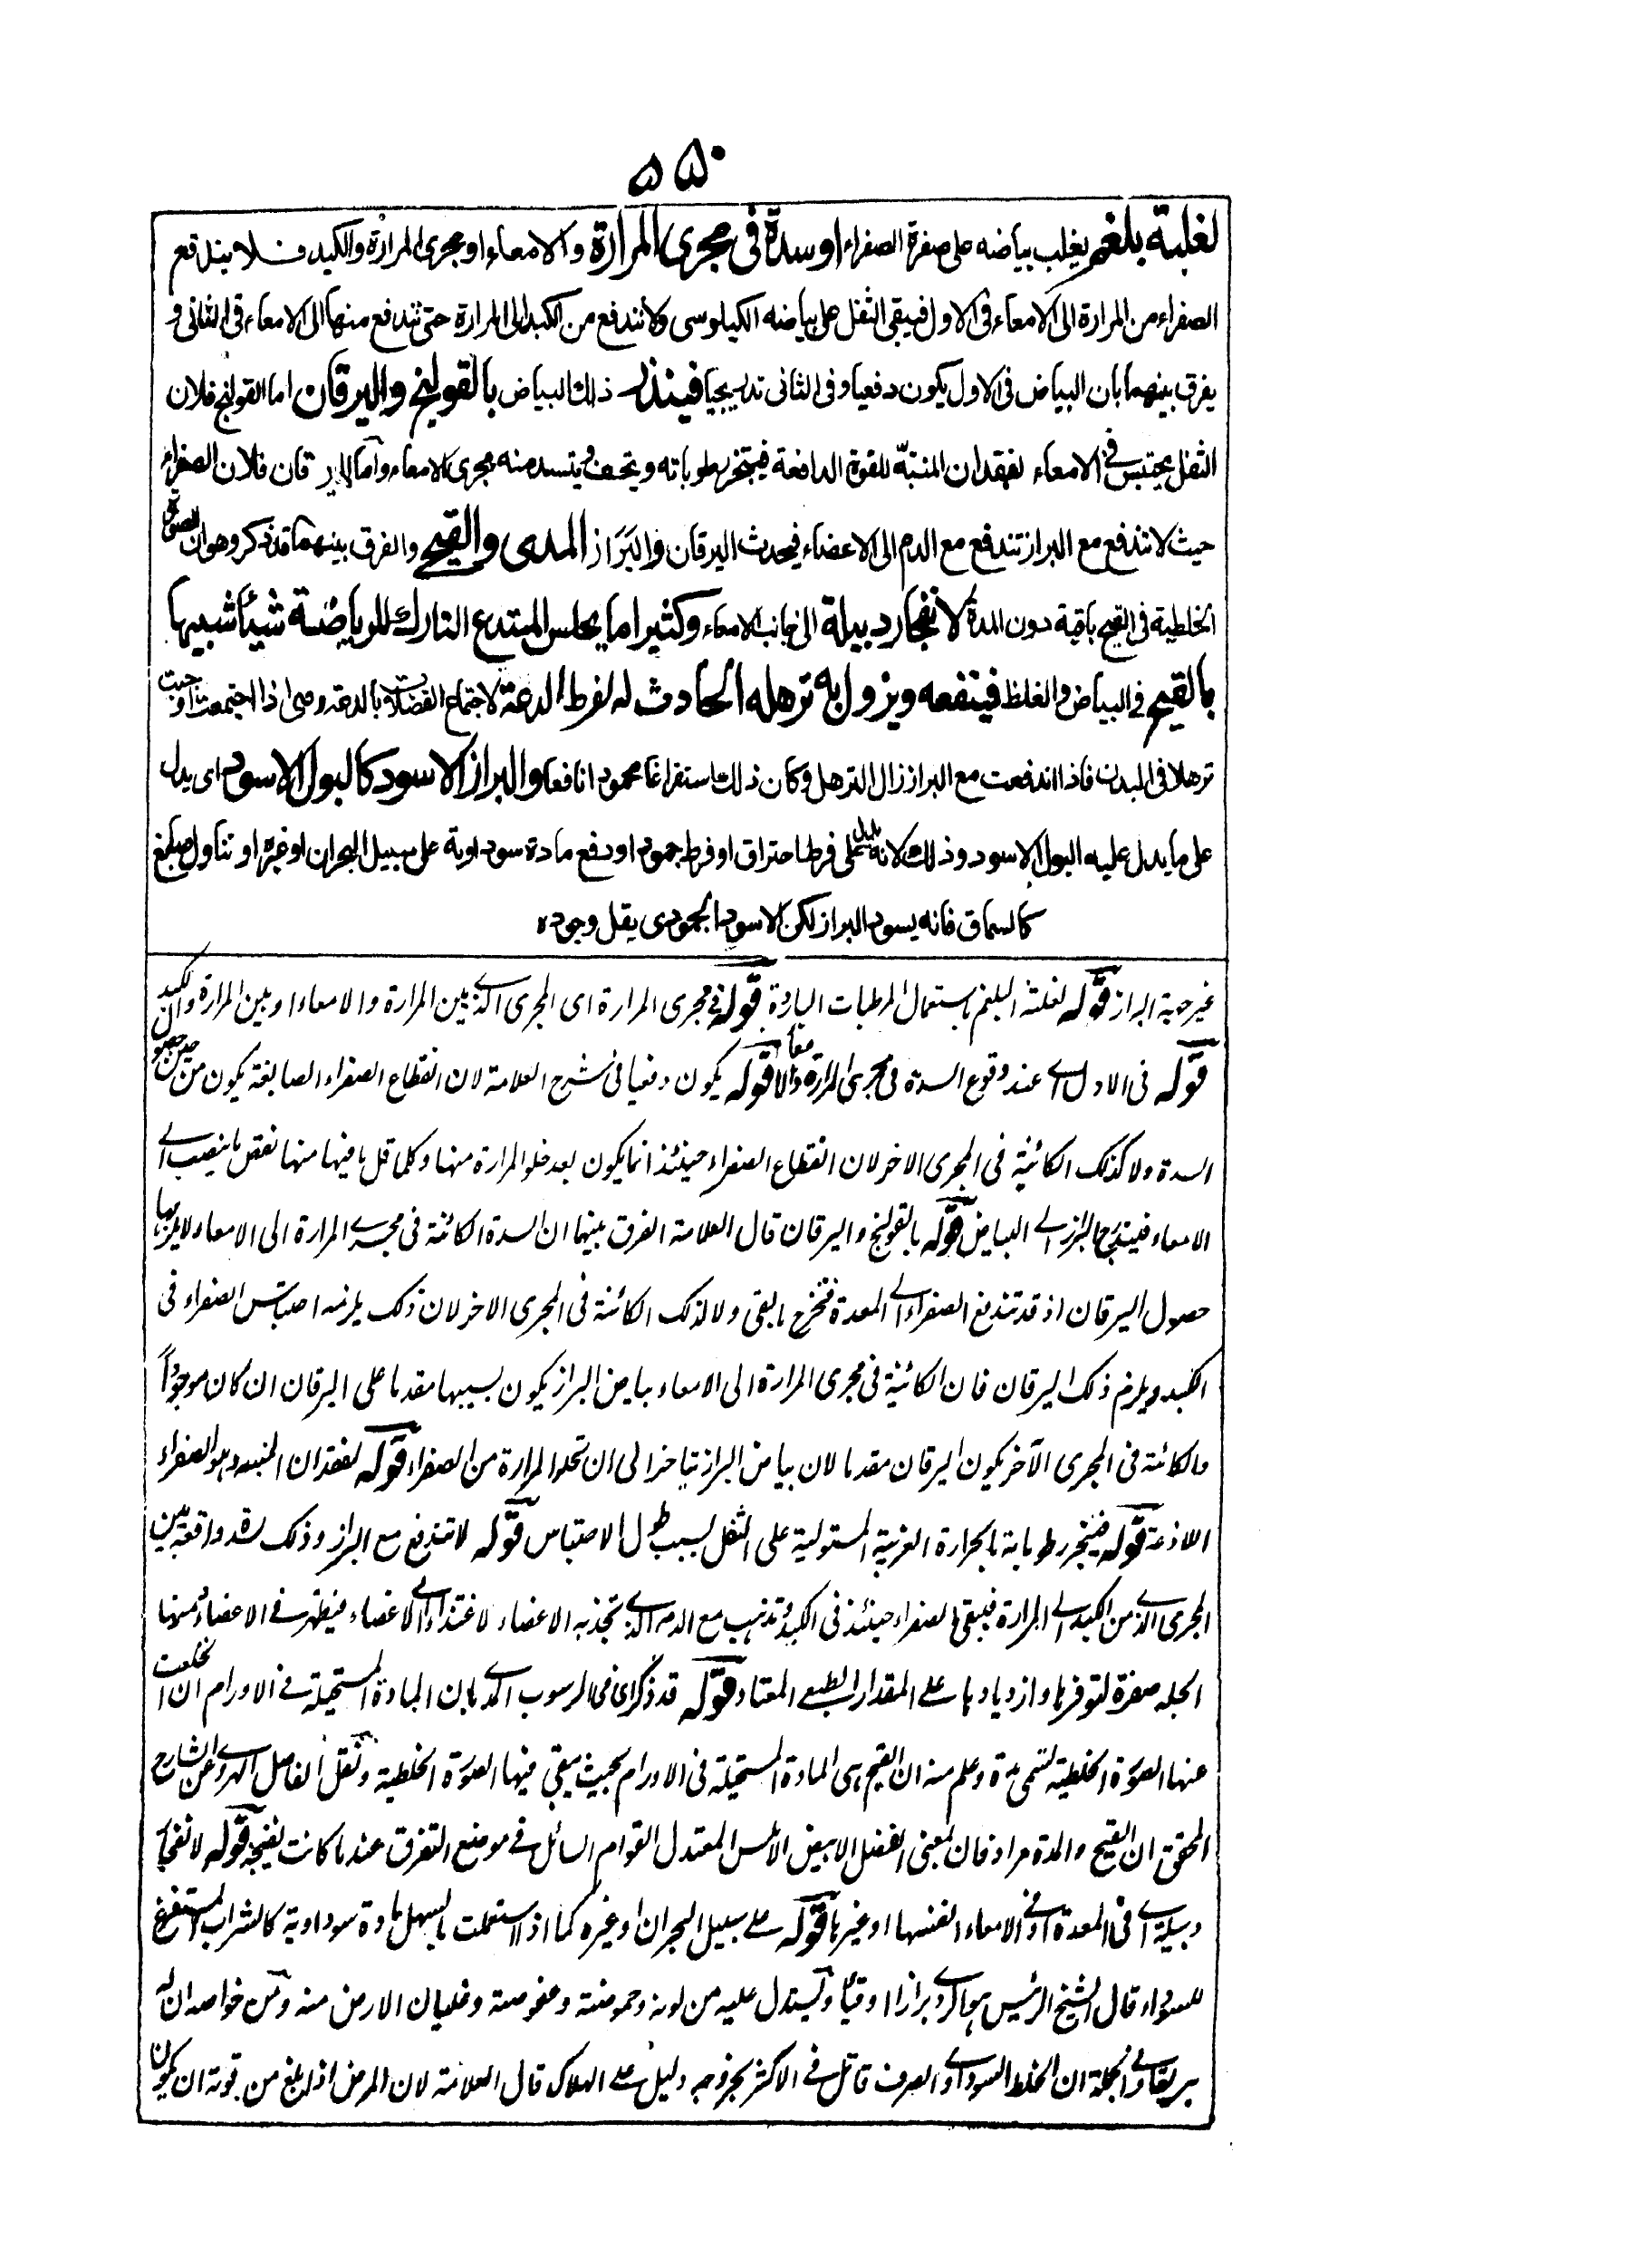 ۵۵۰
لغلبة بلغم يغلب بياضه على صفرة الصفراء او سدة فى مجرى المرارة والامعاء او مجرى المرارة والكبد فلا يندفع
الصفراء من المرارة الى الامعاء فى الاول فيبقى الثفل على بياضه الكيلوسى ولا تندفع من الكبد الى المرارة حتى تندفع منها الى الامعاء فى الثانى و
يفرق بينهما بان البياض فى الاول يكون دفعيا و فى الثانى تدريجيا فينذر ذلك البياض بالقولنج واليرقان اما القولنج فلان
الثفل يحتبس فى الامعاء لفقدان المنبّه للقوة الدافعة فيتبخر رطوباته ويتجفف و يتسد منه مجرى الامعاء واما اليرقان فلان الصفراء
حيث لا تندفع مع البراز تندفع مع الدم الى الاعضاء فيحدث اليرقان والبَرَاز المدى والقيحى والفرق بينهما قد ذكر وهو ان الصورة
الخلطية فى القيح باقية دون المدة لانفجار دبيلة الى جانب الامعاء وكثيرا ما يجلس المبتدع التارك للرياضة شيئا شبيها
بالقيح فى البياض والغلظ فينفعه ويزول به ترهله الحادث له لفرط الدعة لاجتماع الفضلات بالدعة وهى اذا اجتمعت اوجبت
ترهلا فى البدن فاذا اندفعت مع البراز زال الترهل وكان ذلك استفراغا محمودا نافعا والبراز الاسود كالبول الاسود اى يدل
على ما يدل عليه البول الاسود وذلك لانه يدل على فرط احتراق او فرط جمود او دفع مادة سوداوية على سبيل البحران او غيره او تناول صابغ
كالسماق فانه يسود البراز لكن الاسود الجمودى يقل وجوده
غير جهة البراز قوله لغلبة البلغم باستعمال المرطبات الباردة قوله فى مجرى المرارة اى المجرى الذى بين المرارة والامعاء او بين المرارة والكبد
قوله فى الاول اى عند وقوع السدة فى مجرى المرارة والامعاء قوله يكون دفعيا فى شرح العلامة لان انقطاع الصفراء الصابغة يكون من حين حصول
السدة ولا كذلك الكائنة فى المجرى الاخر لان انقطاع الصفراء حينئذ انما يكون بعد خلو المرارة منها وكلما قل ما فيها منها نقص ما ينصب الى
الامعاء فيتدرج البراز الى البياض قوله بالقولنج واليرقان قال العلامة الفرق بينهما ان السدة الكائنة فى مجرى المرارة الى الامعاء لا يلزمها
حصول اليرقان اذ قد تندفع الصفراء الى المعدة فتخرج بالقى ولا كذلك الكائنة فى المجرى الاخر لان ذلك يلزمه احتباس الصفراء فى
الكبد ويلزم ذلك اليرقان فان الكائنة فى مجرى المرارة الى الامعاء بياض البراز يكون بسببها مقدما على اليرقان ان كان موجودًا
والكائنة فى المجرى الآخر يكون اليرقان مقدما لان بياض البراز يتاخر الى ان تخلو المرارة من الصفراء قوله لفقدان المنبه وهو الصفراء
اللاذعة قوله فيتبخر رطوباته بالحرارة الغريبة المستولية على الثفل بسبب طول الاحتباس قوله لا تندفع مع البراز وذلك لسدة واقعة بين
المجرى الذى من الكبد الى المرارة فيبقى الصفراء حينئذ فى الكبد وتذهب مع الدم الذى تجذبه الاعضاء لاغتذاء الاعضاء فيظهر فى الاعضاء منها
الجلد صفرة لتوفرها وازديادها على المقدار الطبعى المعتاد قوله قد ذكر اى فى الرسوب المدى بان المادة المستحيلة فى الاورام ان انخلعت
عنها الصورة الخلطية تسمى مدة وعلم منه ان القيح هى المادة المستحيلة فى الاورام بحيث يبقى فيها الصورة الخلطية ونقل الفاضل الهروى عن الشارح
المحقق ان القيح والمدة مرادفان لمعنى الفضل الابيض الاملس المعتدل القوام السائل فى موضع التفرق عند ما كانت نضيجة قوله لانفجار
دبيلة اى فى المعدة او فى الامعاء انفسها او غيرها قوله على سبيل البحران او غيره كما اذا استعملت ما يسهل مادة سوداوية كالشراب المستفرغ
للسوداء قال الشيخ الرئيس هو اردى برازا او قيئا ويستدل عليه من لونه وحموضته وعفوصته وغليان الارض منه ومن خواصه ان له
بريقا وفى الجملة ان الخلط السوداوى الصرف قاتل فى الاكثر بخروجه دليل على الهلاك قال العلامة لان المرض اذا بلغ من قوته ان يكون